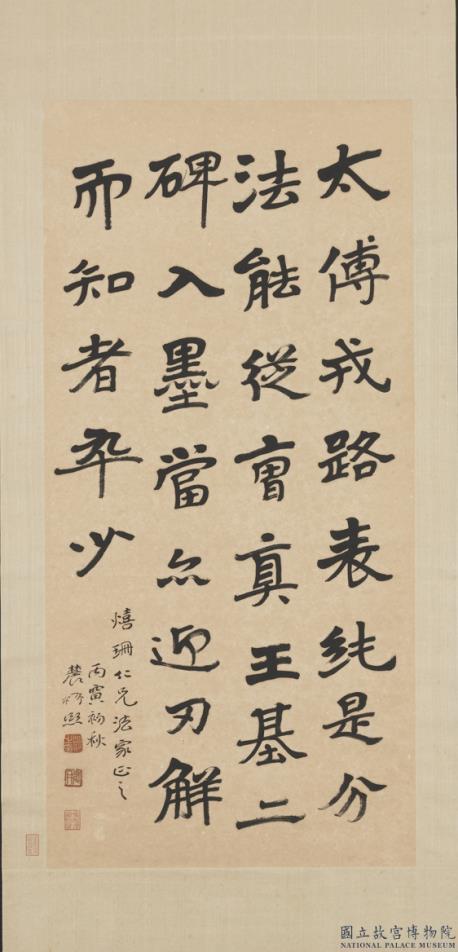 太傅戎路表純是分
法能從曹真王基二
碑入墨當亦迎刃解
而知者卒少
熺珊仁兄法家正之
丙寅初秋
農髯熙
國立故宮博物院
NATIONAL PALACE MUSEUM